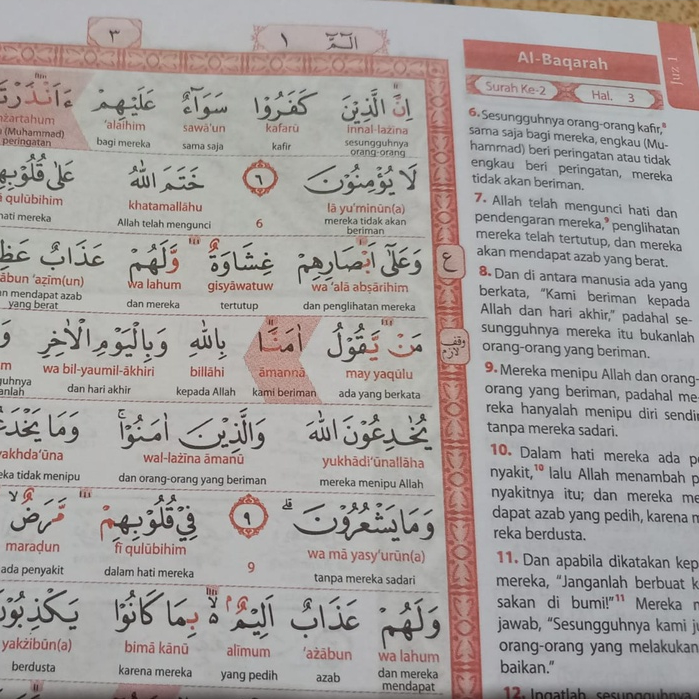 ٣
الۤمّۤ ١
Al-Baqarah
Juz 1
Surah Ke-2
Hal. 3
اِنَّ الَّذِيْنَ كَفَرُوْا سَوَاۤءٌ عَلَيْهِمْ
innal-lażīna kafarū sawā'un 'alaihim
sesungguhnya orang-orang kafir sama saja bagi mereka (Muhammad) peringatan
لَا يُؤْمِنُوْنَ ٦ خَتَمَ اللّٰهُ عَلٰى
lā yu'minūn(a) 6 khatamallāhu qulūbihim
mereka tidak akan beriman Allah telah mengunci hati mereka
وَعَلٰٓى اَبْصَارِهِمْ غِشَاوَةٌ وَّلَهُمْ عَذَابٌ
wa 'alā abṣārihim gisyāwatuw wa lahum 'aẓīm(un)
dan penglihatan mereka tertutup dan mereka mendapat azab yang berat
ع
مَنْ يَّقُوْلُ اٰمَنَّا بِاللّٰهِ وَبِالْيَوْمِ الْاٰخِرِ
may yaqūlu āmannā billāhi wa bil-yaumil-ākhiri
ada yang berkata kami beriman kepada Allah dan hari akhir
وقف لازم
يُخٰدِعُوْنَ اللّٰهَ وَالَّذِيْنَ اٰمَنُوْا وَمَا
yukhādi'ūnallāha wal-lażīna āmanū
mereka menipu Allah dan orang-orang yang beriman tidak menipu
وَمَا يَشْعُرُوْنَ ٩ فِيْ قُلُوْبِهِمْ مَّرَضٌ
wa mā yasy'urūn(a) 9 fī qulūbihim maraḍun
tanpa mereka sadari dalam hati mereka ada penyakit
وَلَهُمْ عَذَابٌ اَلِيْمٌ بِمَا كَانُوْا يَكْذِبُوْنَ
wa lahum 'ażābun alīmum bimā kānū yakżibūn(a)
dan mereka mendapat azab yang pedih karena mereka berdusta
6. Sesungguhnya orang-orang kafir,⁸
sama saja bagi mereka, engkau (Mu-
hammad) beri peringatan atau tidak
engkau beri peringatan, mereka
tidak akan beriman.
7. Allah telah mengunci hati dan
pendengaran mereka,⁹ penglihatan
mereka telah tertutup, dan mereka
akan mendapat azab yang berat.
8. Dan di antara manusia ada yang
berkata, “Kami beriman kepada
Allah dan hari akhir,” padahal se-
sungguhnya mereka itu bukanlah
orang-orang yang beriman.
9. Mereka menipu Allah dan orang-
orang yang beriman, padahal me-
reka hanyalah menipu diri
tanpa mereka sadari.
10. Dalam hati mereka ada
nyakit,¹⁰ lalu Allah menambah
nyakitnya itu; dan mereka
dapat azab yang pedih, karena
reka berdusta.
11. Dan apabila dikatakan
mereka, “Janganlah berbuat
sakan di bumi!”¹¹ Mereka
jawab, “Sesungguhnya kami
orang-orang yang melakukan
baikan.”
12. Ingatlah